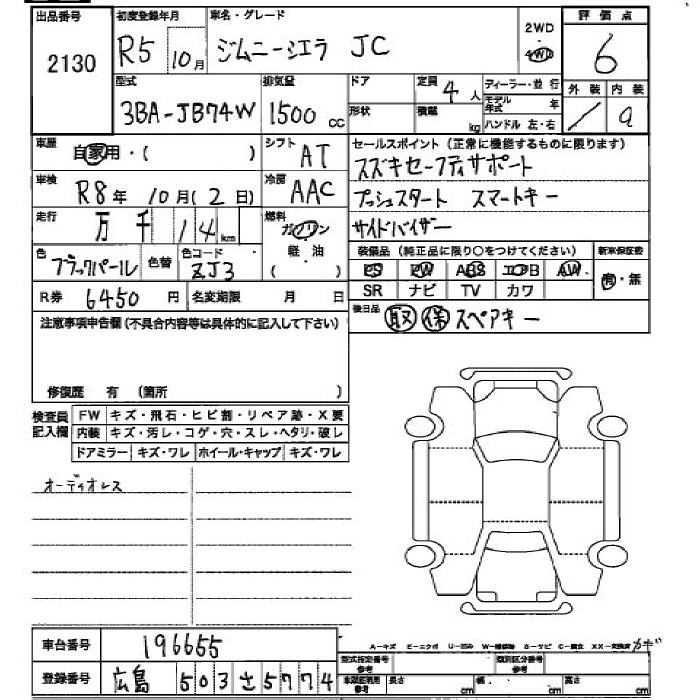 出品番号 初度登録年月 車名・グレード 2WD 評価点
2130 R5 10月 ジムニーシエラ JC 4WD 6
型式 排気量 ドア 定員 4人 ディーラー・並行 外装 内装
3BA-JB74W 1500cc 形状 積載 kg モデル年式 年 / a
ハンドル 左・右
車歴 自家用・( ) シフト AT セールスポイント(正常に機能するものに限ります)
スズキセーフティサポート
車検 R8年 10月(2日) 冷房 AAC プッシュスタート スマートキー
走行 万 千 14km 燃料 ガソリン サイドバイザー
軽・油
( )
色 ブラックパール 色替 色コード ZJ3 装備品(純正品に限り○をつけてください) 新車保証書
PS PW ABS エアB AW 有・無
R券 6450円 名変期限 月 日 SR ナビ TV カワ
注意事項申告欄(不具合内容等は具体的に記入して下さい) 後日品 取 保 スペアキー
修復歴 有 (箇所 )
検査員記入欄 FW キズ・飛石・ヒビ割・リペア跡・X要
内装 キズ・汚レ・コゲ・穴・スレ・ヘタリ・破レ
ドアミラー キズ・ワレ ホイール・キャップ キズ・ワレ
オーディオレス
車台番号 196655 A-キズ E-エクボ U-凹ミ W-補修跡 S-サビ C-腐食 XX-交換済 カギ
型式指定番号 参考 類別区分番号 参考
登録番号 広島 503 さ 5774 車両延長用 参考 長さ cm 幅 cm 高さ cm